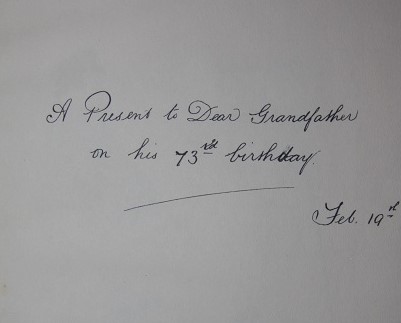 A Present to Dear Grandfather
on his 73rd birthday.
Feb. 19th